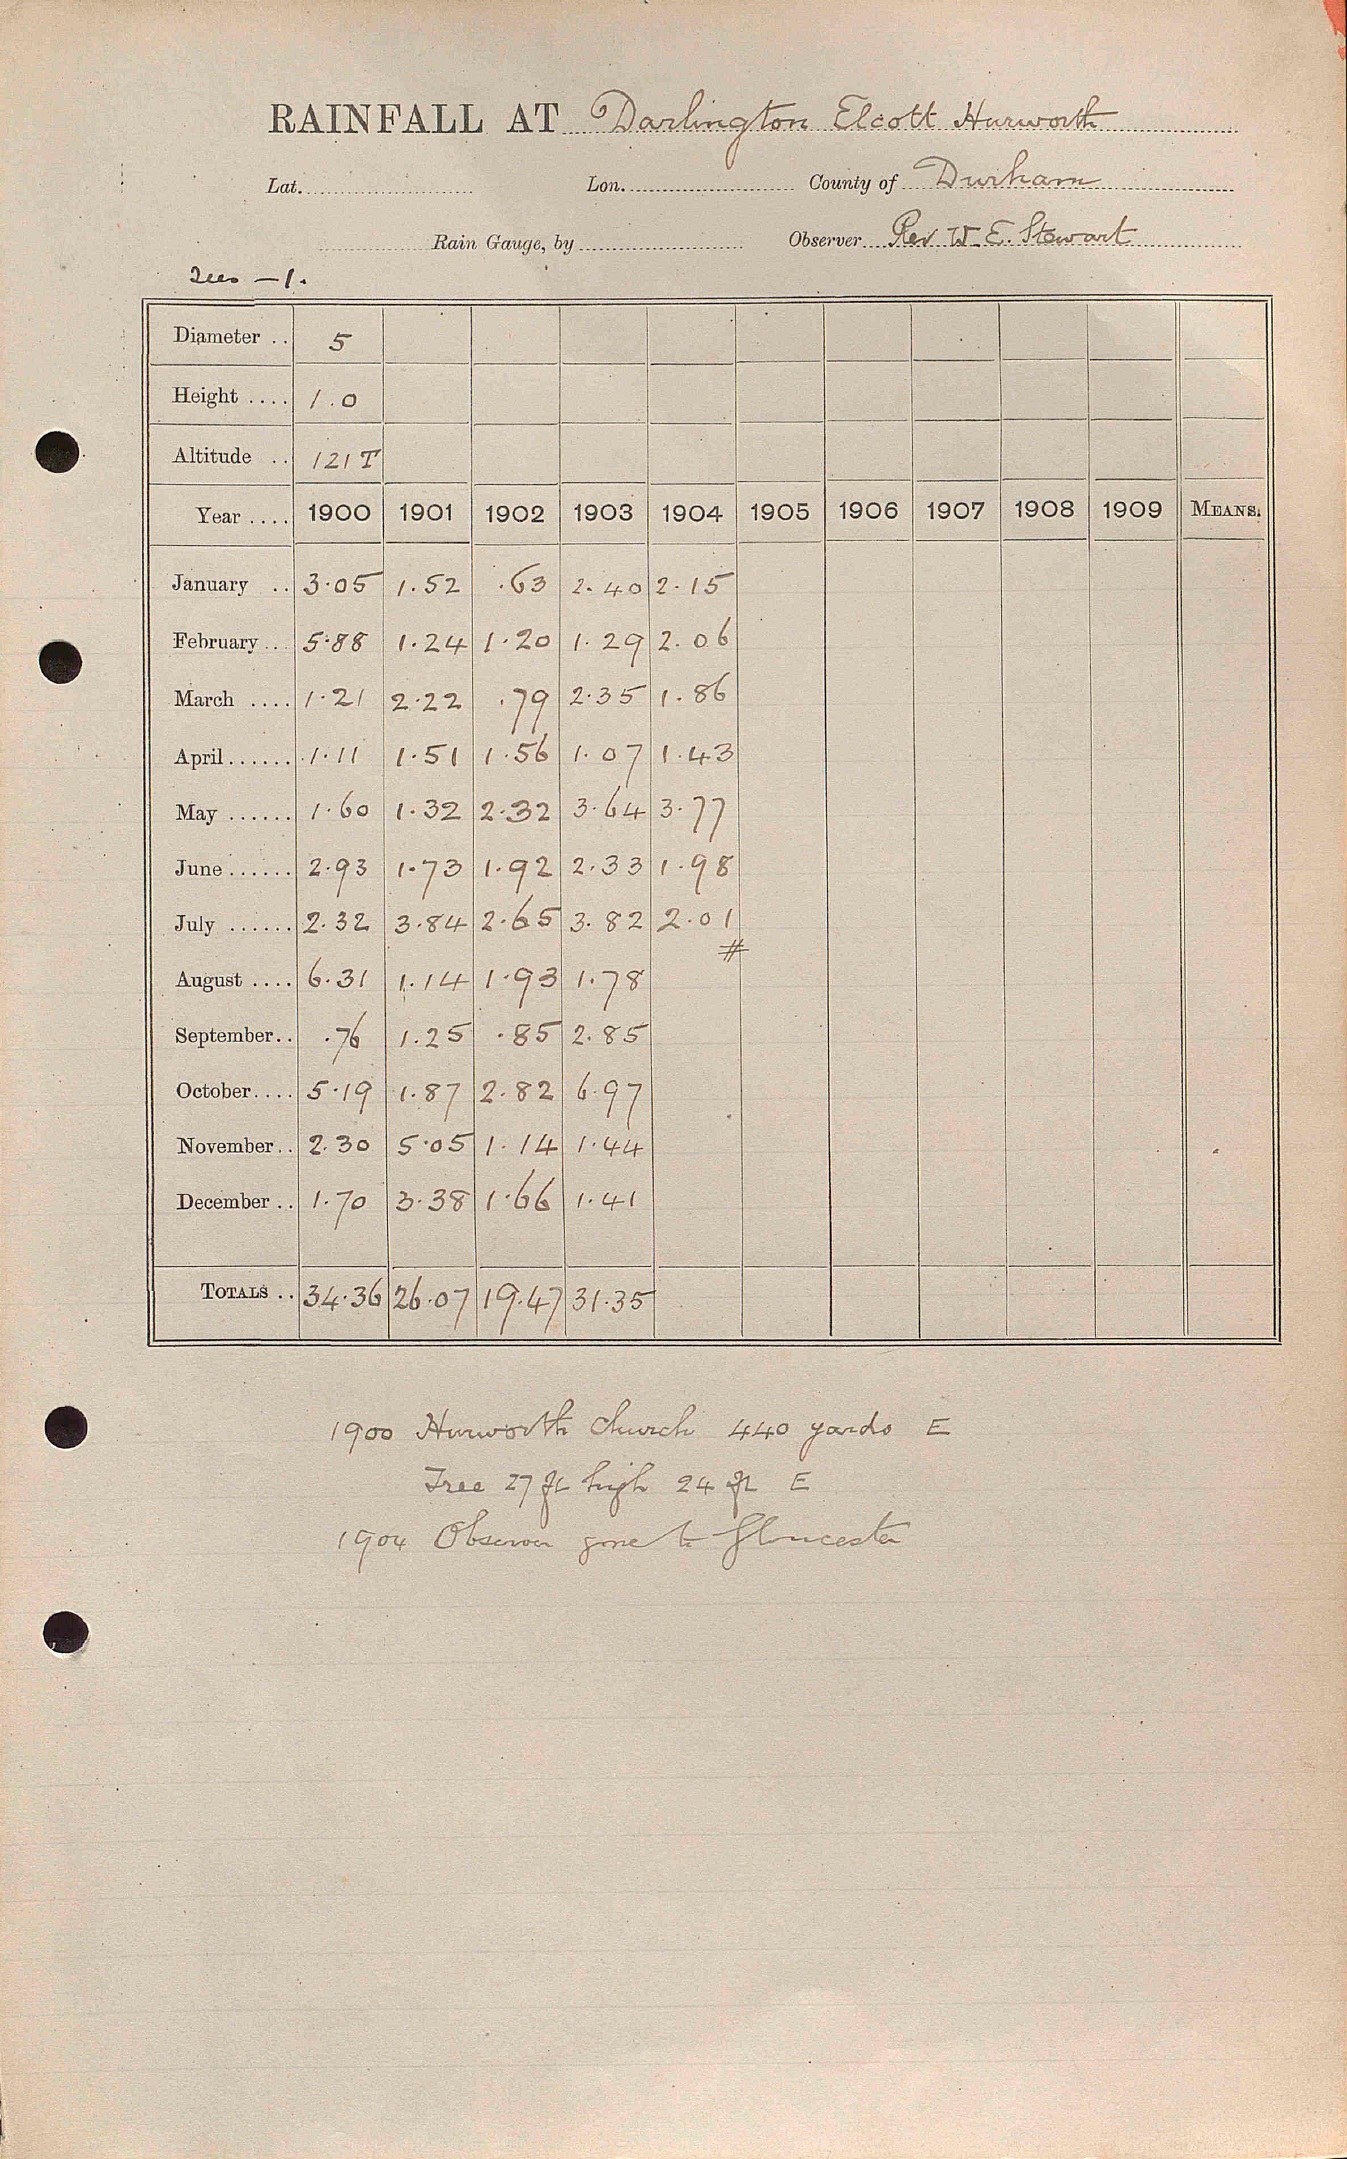 RAINFALL AT Darlington Elcott Hurworth
Lat. Lon. County of Durham
Rain Gauge, by Observer Rev W. E. Stewart
Tees — 1.
Diameter .. 5
Height .... 1.0
Altitude .. 121 T
Year .... 1900 1901 1902 1903 1904 1905 1906 1907 1908 1909 MEANS.
January .. 3.05 1.52 .63 2.40 2.15
February .. 5.88 1.24 1.20 1.29 2.06
March .... 1.21 2.22 .79 2.35 1.86
April ...... 1.11 1.51 1.56 1.07 1.43
May ...... 1.60 1.32 2.32 3.64 3.77
June ...... 2.93 1.73 1.92 2.33 1.98
July ...... 2.32 3.84 2.65 3.82 2.01
#
August .... 6.31 1.14 1.93 1.78
September .. .76 1.25 .85 2.85
October .... 5.19 1.87 2.82 6.97
November .. 2.30 5.05 1.14 1.44
December .. 1.70 3.38 1.66 1.41
TOTALS .. 34.36 26.07 19.47 31.35
1900 Hurworth Church 440 yards E
Tree 27 ft high 24 ft E
1904 Observer gone to Gloucester